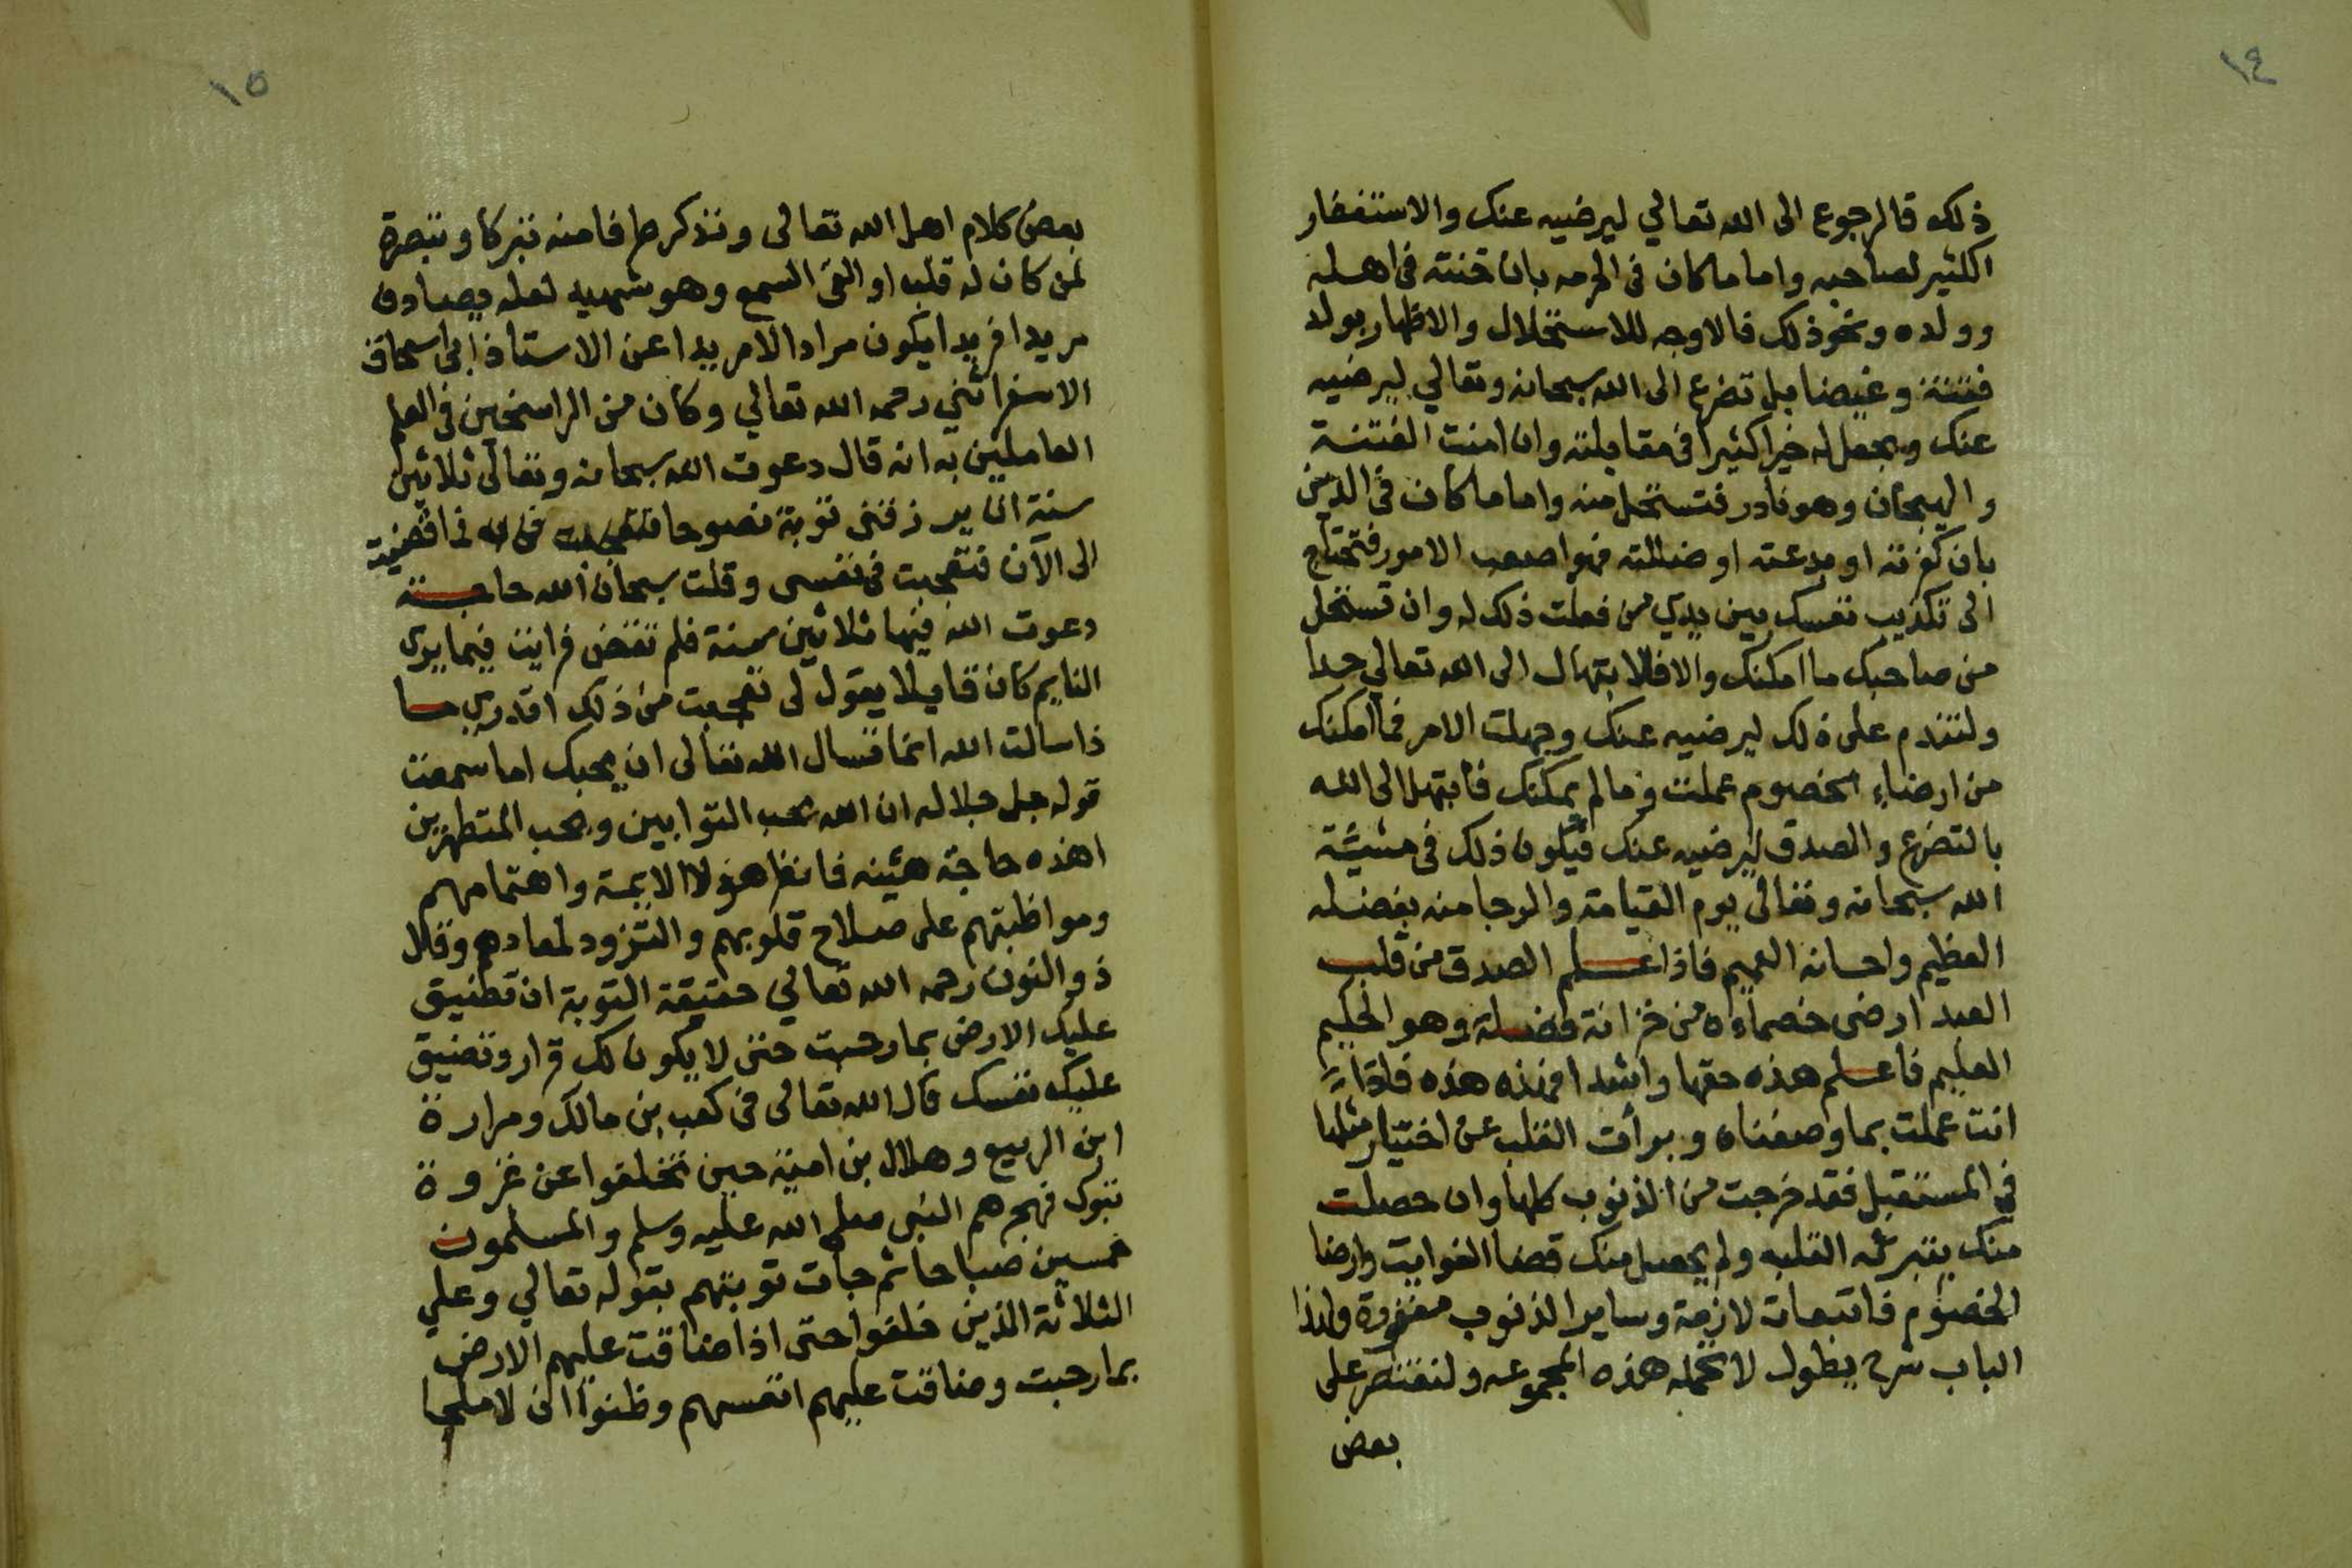 ١٤
ذلك فالرجوع الى الله تعالي ليرضيه عنك والاستغفار
الكثير لصاحبه واما ما كان في الحرمه بان خنته في اهله
وولده ونحو ذلك فالاوجه للاستحلال والاظهار يولد
فتنة وغيضا بل تضرع الى الله سبحانه وتعالي ليرضيه
عنك ويجعل له خيرا كثيرا في مقابلته وان امنت الفتنة
والهيجان وهو نادر فتستحل منه واما ما كان في الدين
بان كفرته او بدعته او ضللته فهو اصعب الامور فتحتاج
الى تكذيب نفسك بين يدي من فعلت ذلك له وان تستحل
من صاحبك ما امكنك والا فالابتهال الى الله تعالي جدا
ولتندم على ذلك ليرضيه عنك وجملت الامر فما امكنك
من ارضاء الخصوم عملت وما لم يمكنك فابتهل الى الله
بالتضرع والصدق ليرضيه عنك فيكون ذلك في مشيئة
الله سبحانه وتعالى يوم القيامة والرجا منه بفضله
العظيم واحسانه العميم فاذا علم الصدق من قلب
العبد ارضى خصماءه من خزانة فضله وهو الحكيم
العليم فاعلم هذه حقها واشدا فهذه هذه فاذا
انت عملت بما وصفناه وبرأت القلب عن اختيار مثلها
في المستقبل فقد خرجت من الذنوب كلها وان حصلت
منك بتبرئه القلبه ولم يحصل منك قضا الفوايت وارضا
الخصوم فالتبعات لازمة وساير الذنوب مغفورة ولهذا
الباب شرح يطول لا تحمله هذه المجموعه ولنقتصر على
بعض
١٥
بعض كلام اهل الله تعالى ونذكر طرفا منه تبركا وتبصرة
لمن كان له قلب او القى السمع وهو شهيد لعله يصادف
مريدا فريدا يكون مراد الامريدا عن الاستاذ ابي اسحاق
الاسفرائني رحمه الله تعالي وكان من الراسخين في العلم
العاملين به انه قال دعوت الله سبحانه وتعالى ثلاثين
سنة ان يرزقني توبة نصوحا
الى الآن فتعجبت في نفسي وقلت سبحان الله حاجة
دعوت الله فيها ثلاثين سنة فلم تقض فرايت فيما يرى
النايم كان قايلا يقول لى تعجبت من ذلك اتدري ما
ذا سالت الله انما تسال الله تعالى ان يحبك اما سمعت
قوله جل جلاله ان الله يحب التوابين ويحب المتطهرين
اهذه حاجة هينه فانظر هؤلا الايمة واهتمامهم
ومواظبتهم على صلاح قلوبهم والتزود لمعادهم وقال
ذو النون رحمه الله تعالي حقيقة التوبة ان تضيق
عليك الارض بما رحبت حتى لا يكون لك قرار وتضيق
عليك نفسك قال الله تعالى في كعب بن مالك ومرارة
ابن الربيع وهلال بن امية حين تخلفوا عن غزوة
تبوك فهجرهم النبي صلى الله عليه وسلم والمسلمون
خمسين صباحا ثم جات توبتهم بقوله تعالي وعلي
الثلاثة الذين خلفوا حتى اذا ضاقت عليهم الارض
بما رحبت وضاقت عليهم انفسهم وظنوا ان لا ملجا